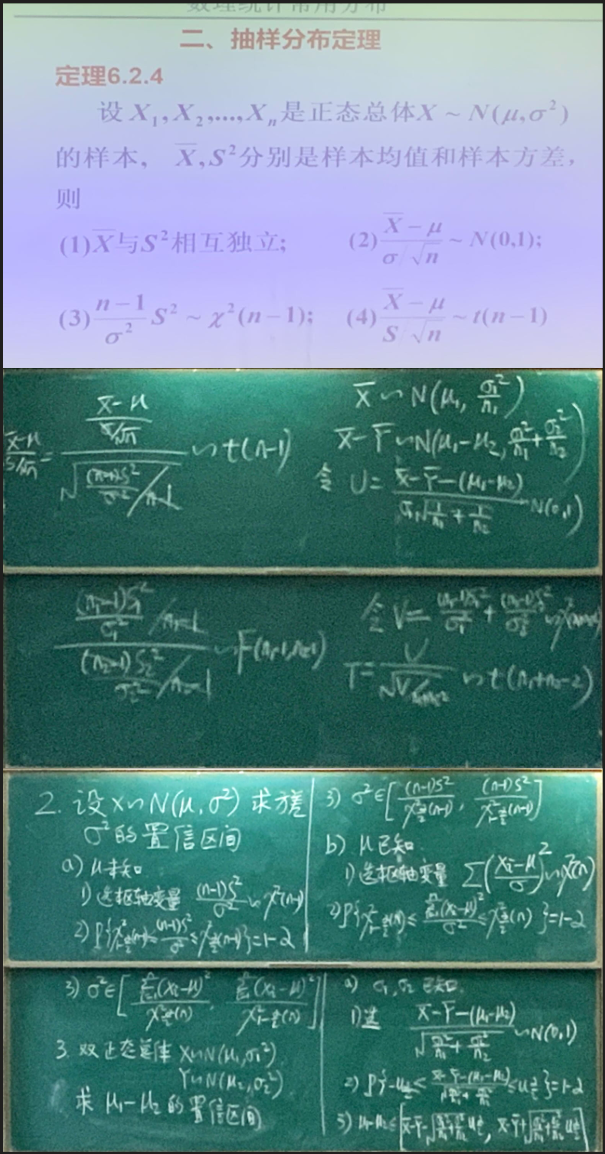 数理统计常用分布
二、抽样分布定理
定理6.2.4
设 X₁, X₂,..., Xₙ 是正态总体 X ~ N(μ,σ²)
的样本, X̄, S² 分别是样本均值和样本方差,
则
(1) X̄ 与 S² 相互独立; (2) (X̄ − μ)/(σ/√n) ~ N(0,1);
(3) (n−1)/σ² S² ~ χ²(n−1); (4) (X̄ − μ)/(S/√n) ~ t(n−1)
(X̄−μ)/(S/√n) = ((X̄−μ)/(σ/√n)) / √((n-1)S²/σ² / n-1) ~ t(n-1)
X̄ ~ N(μ₁, σ₁²/n₁)
X̄-Ȳ ~ N(μ₁-μ₂, σ₁²/n₁ + σ₂²/n₂)
令 U = (X̄-Ȳ-(μ₁-μ₂)) / (σ√(1/n₁ + 1/n₂)) ~ N(0,1)
((n₁-1)S₁²/σ₁² / n₁-1) / ((n₂-1)S₂²/σ₂² / n₂-1) ~ F(n₁-1, n₂-1)
令 V = (n₁-1)S₁²/σ₁² + (n₂-1)S₂²/σ₂² ~ χ²
T = U/√(V/n₁+n₂-2) ~ t(n₁+n₂-2)
2. 设 X ~ N(μ, σ²) 求方差
σ² 的置信区间
a) μ未知
1) 选枢轴变量 (n-1)S²/σ² ~ χ²(n-1)
2) P{χ²₁₋α/₂(n-1) ≤ (n-1)S²/σ² ≤ χ²α/₂(n-1)} = 1-α
3) σ² ∈ [(n-1)S²/χ²α/₂(n-1), (n-1)S²/χ²₁₋α/₂(n-1)]
b) μ已知
1) 选枢轴变量 Σ((Xᵢ-μ)/σ)² ~ χ²(n)
2) P{χ²₁₋α/₂(n) ≤ Σ(Xᵢ-μ)²/σ² ≤ χ²α/₂(n)} = 1-α
3) σ² ∈ [Σ(Xᵢ-μ)²/χ²α/₂(n), Σ(Xᵢ-μ)²/χ²₁₋α/₂(n)]
3. 双正态总体 X ~ N(μ₁, σ₁²)
Y ~ N(μ₂, σ₂²)
求 μ₁-μ₂ 的置信区间
a) σ₁, σ₂ 已知
1) 选 (X̄-Ȳ-(μ₁-μ₂)) / √(σ₁²/n₁ + σ₂²/n₂) ~ N(0,1)
2) P{-uα/₂ ≤ (X̄-Ȳ-(μ₁-μ₂))/√(σ₁²/n₁+σ₂²/n₂) ≤ uα/₂} = 1-α
3) μ₁-μ₂ ∈ [X̄-Ȳ-√(σ₁²/n₁+σ₂²/n₂) uα/₂, X̄-Ȳ+√(σ₁²/n₁+σ₂²/n₂) uα/₂]